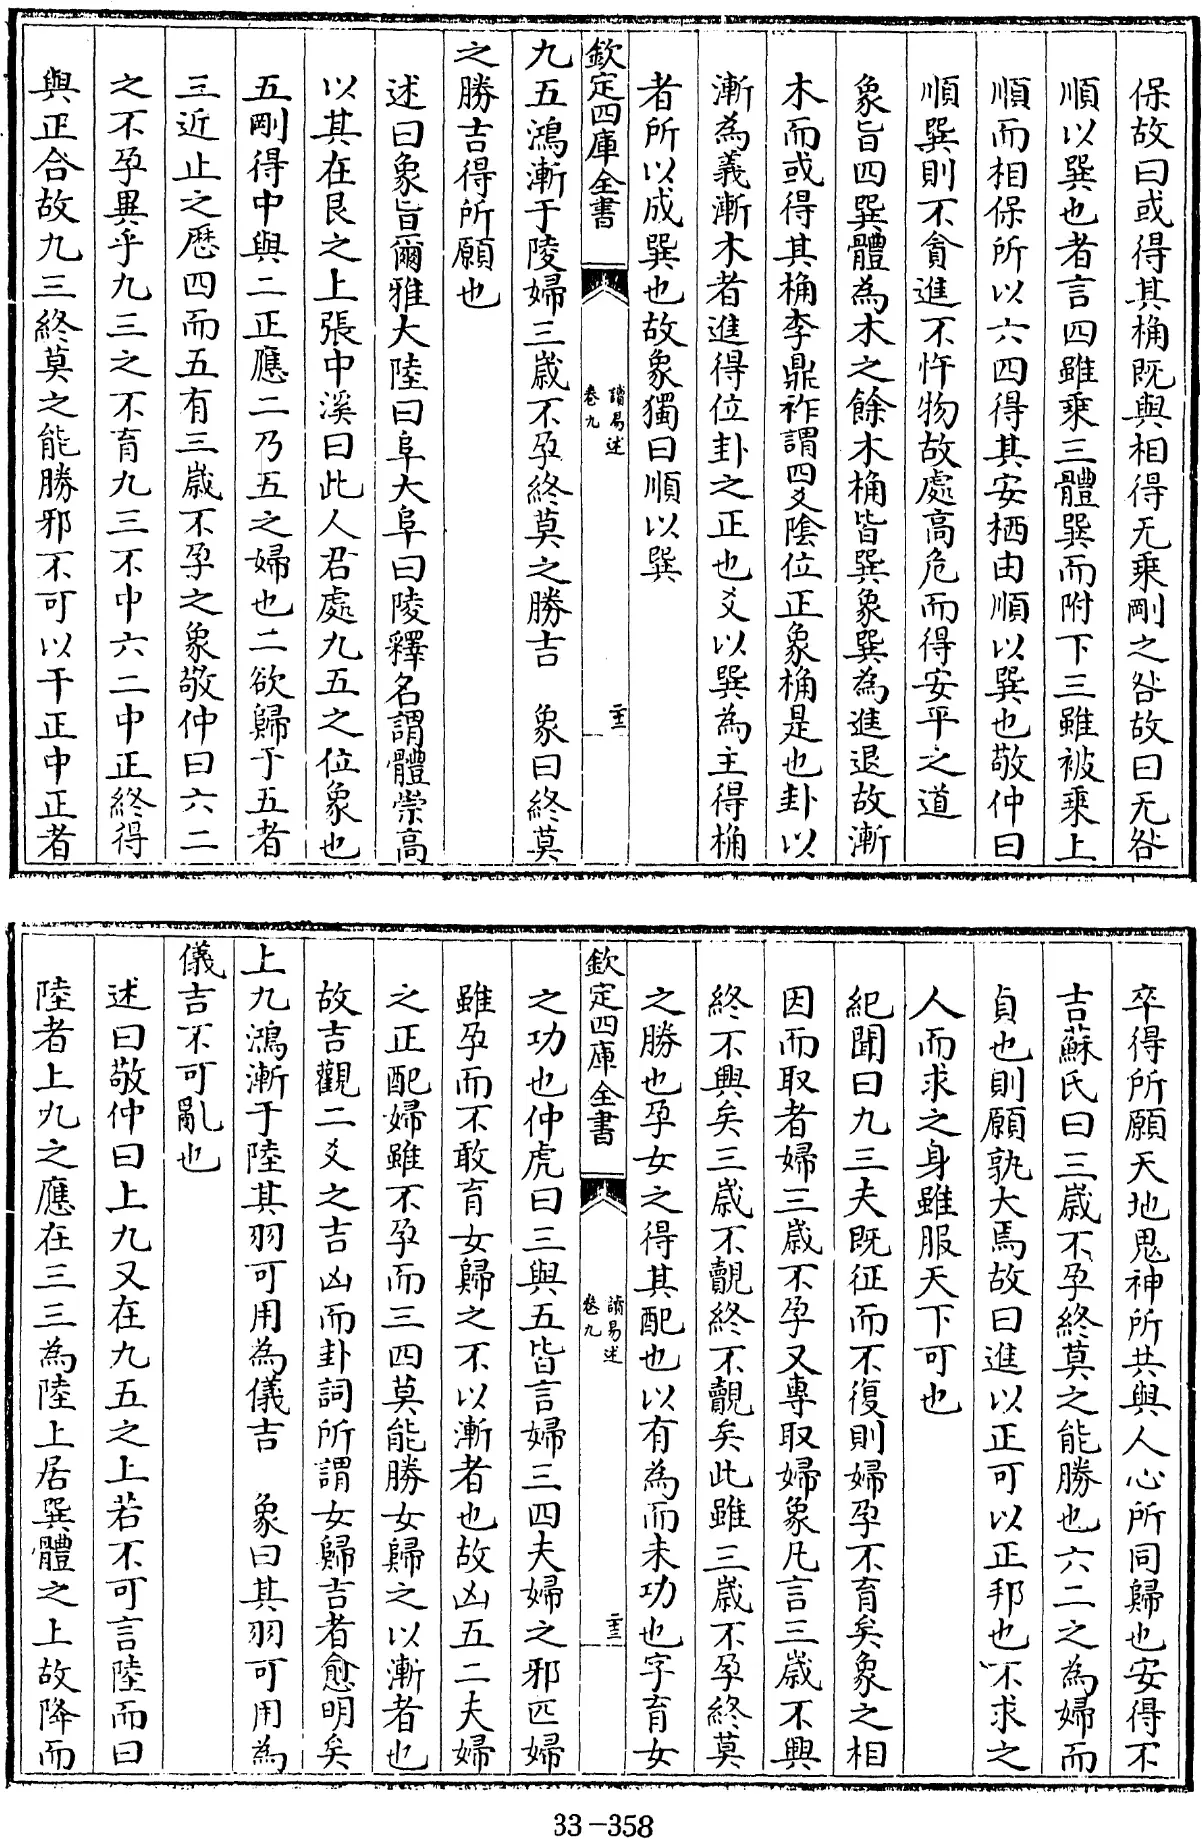 保故曰或得其桷既與相得无乘剛之咎故曰无咎
順以巽也者言四雖乘三體巽而附下三雖被乘上
順而相保所以六四得其安栖由順以巽也敬仲曰
順巽則不貪進不忤物故處高危而得安平之道
象旨四巽體為木之餘木桷皆巽象巽為進退故漸
木而或得其桷李鼎祚謂四爻隂位正象桷是也卦以
漸為義漸木者進得位卦之正也爻以巽為主得桷
者所以成巽也故象獨曰順以巽
欽定四庫全書
讀易述
卷九
二十三
九五鴻漸于陵婦三歲不孕終莫之勝吉　象曰終莫
之勝吉得所願也
述曰象旨爾雅大陸曰阜大阜曰陵釋名謂體崇高
以其在艮之上張中溪曰此人君處九五之位象也
五剛得中與二正應二乃五之婦也二欲歸于五者
三近止之歴四而五有三歲不孕之象敬仲曰六二
之不孕異乎九三之不育九三不中六二中正終得
與正合故九三終莫之能勝邪不可以干正中正者
卒得所願天地鬼神所共與人心所同歸也安得不
吉蘇氏曰三歲不孕終莫之能勝也六二之為婦而
貞也則願孰大焉故曰進以正可以正邦也不求之
人而求之身雖服天下可也
紀聞曰九三夫既征而不復則婦孕不育矣象之相
因而取者婦三歲不孕又專取婦象凡言三歲不興
終不興矣三歲不覿終不覿矣此雖三歲不孕終莫
之勝也孕女之得其配也以有為而未功也字育女
欽定四庫全書
讀易述
卷九
二十三
之功也仲虎曰三與五皆言婦三四夫婦之邪匹婦
雖孕而不敢育女歸之不以漸者也故凶五二夫婦
之正配婦雖不孕而三四莫能勝女歸之以漸者也
故吉觀二爻之吉凶而卦詞所謂女歸吉者愈明矣
上九鴻漸于陸其羽可用為儀吉　象曰其羽可用為
儀吉不可亂也
述曰敬仲曰上九又在九五之上若不可言陸而曰
陸者上九之應在三三為陸上居巽體之上故降而
33-358